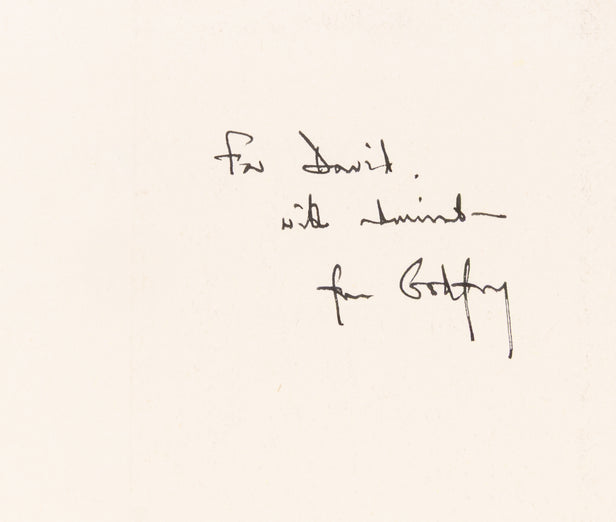 For David.
with admiration
from Godfrey